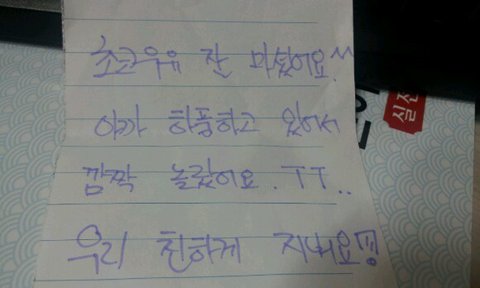 초코우유 잘 마셨어요^^
아까 하품하고 있어서
깜짝 놀랐어요. TT..
우리 친하게 지내요